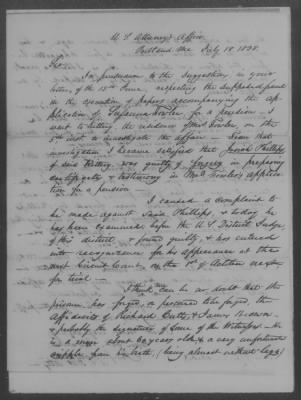 U S Attorney's Office
Portland Me July 18. 1838.
Sir
In pursuance to the suggestion in your
letter, of the 15th June, respecting the supposed fraud
in the execution of papers accompanying the ap-
plication of Susanna Fowler for a pension I
went to Kittery, the residence of Mrs Fowler on the
5th inst to investigate the affair — From that
investigation I became satisfied that Josiah Phillips
of said Kittery was guilty of forgery in preparing
certificates & testimony in Mrs Fowler's applica-
tion for a pension.
I caused a complaint to
be made against said Phillips, & today he
has been examined before the U S District Judge
of this district & found guilty, & has entered
into recognizance for his appearance at the
next Circuit Court on the 1st of October next
for trial —
I think there can be no doubt that the
prisoner has forged, or procured to be forged, the
Affidavits of Richard Cutts, & James Brown
& probably the signatures of some of the Witnesses. He
is a man about 60 years old, & a very unfortunate
cripple from his birth (being almost without legs)